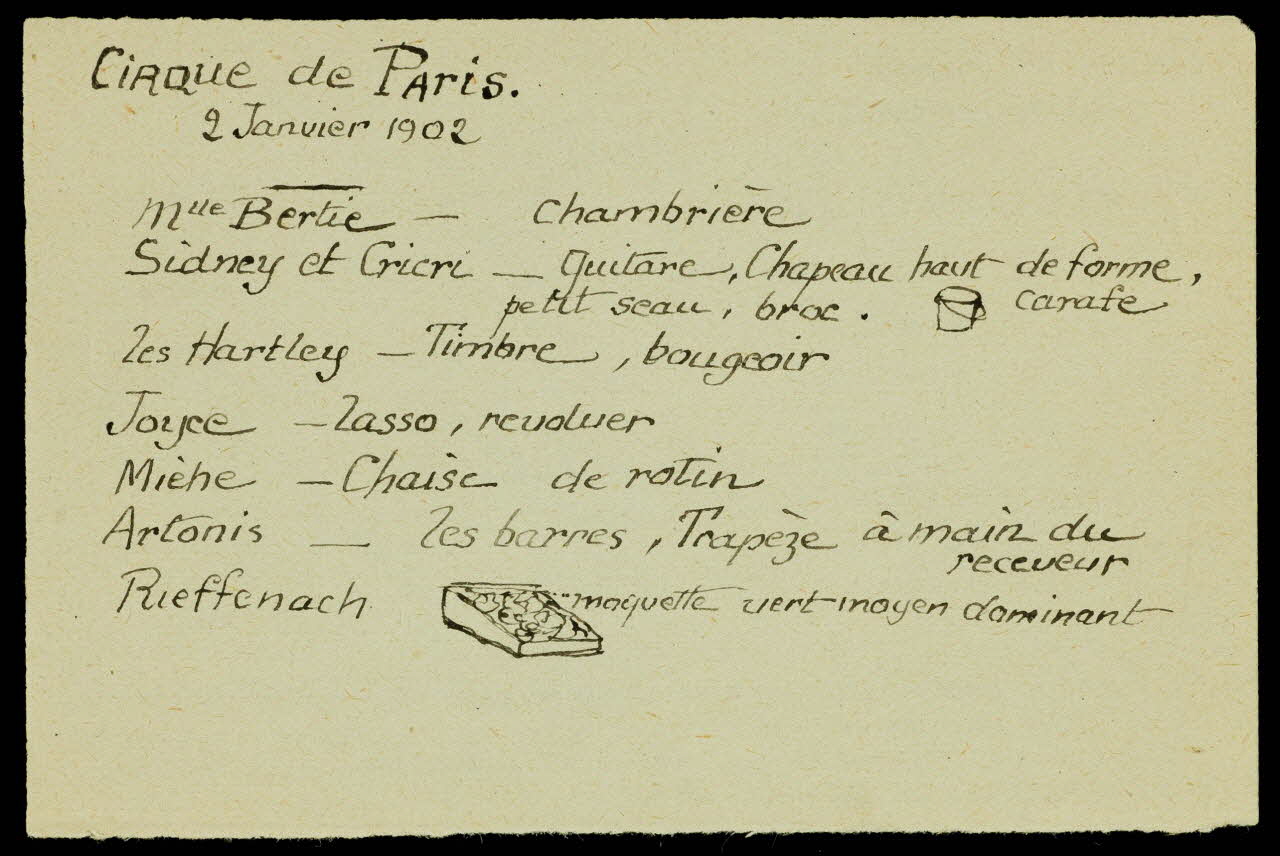 Cirque de Paris.
2 Janvier 1902
Mlle Bertie — chambrière
Sidney et Cricri — guitare, Chapeau haut de forme,
petit seau, broc. carafe
les Hartley — Timbre, bougeoir
Joyce — lasso, revolver
Mièhe — Chaise de rotin
Artonis — les barres, Trapèze à main du
receveur
Rieffenach moquette vert moyen dominant